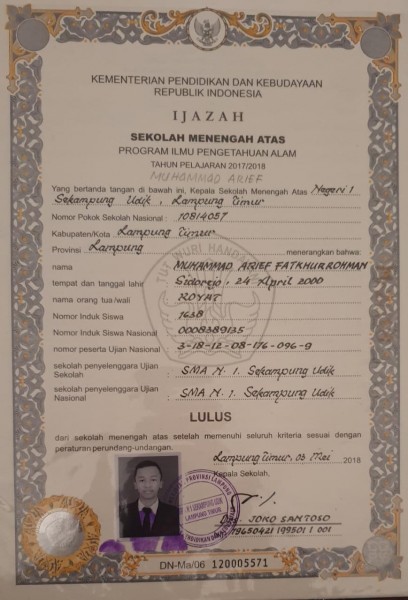 KEMENTERIAN PENDIDIKAN DAN KEBUDAYAAN
REPUBLIK INDONESIA
IJAZAH
SEKOLAH MENENGAH ATAS
PROGRAM ILMU PENGETAHUAN ALAM
TAHUN PELAJARAN 2017/2018
MUHAMMAD ARIEF
Yang bertanda tangan di bawah ini, Kepala Sekolah Menengah Atas Negeri 1
Sekampung Udik, Lampung Timur
Nomor Pokok Sekolah Nasional : 10814057
Kabupaten/Kota Lampung Timur
Provinsi Lampung menerangkan bahwa:
nama : MUHAMMAD ARIEF FATKHURROHMAN
tempat dan tanggal lahir : Sidorejo, 24 April 2000
nama orang tua/wali : ROYAT
Nomor Induk Siswa : 1638
Nomor Induk Siswa Nasional : 0008389135
nomor peserta Ujian Nasional : 3-18-12-08-176-096-9
sekolah penyelenggara Ujian Sekolah : SMA N. 1. Sekampung Udik
sekolah penyelenggara Ujian Nasional : SMA N. 1. Sekampung Udik
TUT WURI HANDAYANI
LULUS
dari sekolah menengah atas setelah memenuhi seluruh kriteria sesuai dengan
peraturan perundang-undangan.
Lampung Timur, 03 Mei 2018
Kepala Sekolah,
PROVINSI LAMPUNG
SEKAMPUNG UDIK
LAMPUNG TIMUR
Drs. JOKO SANTOSO
19650421 199501 1 001
DN-Ma/06 120005571